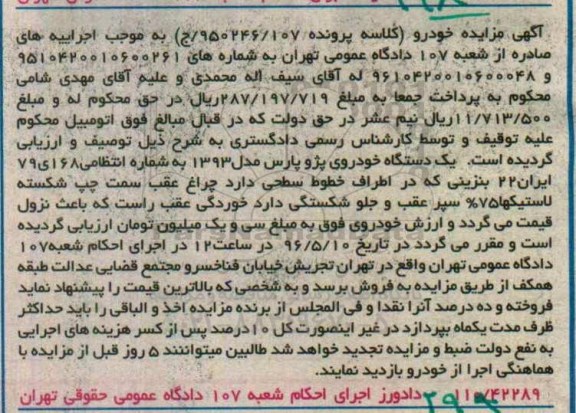 آگهی مزایده خودرو (کلاسه پرونده ۹۵۰۲۴۶/۱۰۷/ج) به موجب اجراییه های
صادره از شعبه ۱۰۷ دادگاه عمومی تهران به شماره های ۹۵۱۰۴۲۰۰۱۰۶۰۰۲۶۱
و ۹۶۱۰۴۲۰۰۱۰۶۰۰۰۴۸ له آقای سیف اله محمدی و علیه آقای مهدی شامی
محکوم به پرداخت جمعا به مبلغ ۲۸۷/۱۹۷/۷۱۹ریال در حق محکوم له و مبلغ
۱۱/۷۱۳/۵۰۰ریال نیم عشر در حق دولت که در قبال مبالغ فوق اتومبیل محکوم
علیه توقیف و توسط کارشناس رسمی دادگستری به شرح ذیل توصیف و ارزیابی
گردیده است. یک دستگاه خودروی پژو پارس مدل۱۳۹۳ به شماره انتظامی۱۶۸ی۷۹
ایران۲۲ بنزینی که در اطراف خطوط سطحی دارد چراغ عقب سمت چپ شکسته
لاستیکها۷۵% سپر عقب و جلو شکستگی دارد خوردگی عقب راست که باعث نزول
قیمت می گردد و ارزش خودروی فوق به مبلغ سی و یک میلیون تومان ارزیابی گردیده
است و مقرر می گردد در تاریخ ۹۶/۵/۱۰ در ساعت۱۲ در اجرای احکام شعبه۱۰۷
دادگاه عمومی تهران واقع در تهران تجریش خیابان فناخسرو مجتمع قضایی عدالت طبقه
همکف از طریق مزایده به فروش برسد و به شخصی که بالاترین قیمت را پیشنهاد نماید
فروخته و ده درصد آنرا نقدا و فی المجلس از برنده مزایده اخذ و الباقی را باید حداکثر
ظرف مدت یکماه بپردازد در غیر اینصورت کل ۱۰درصد پس از کسر هزینه های اجرایی
به نفع دولت ضبط و مزایده تجدید خواهد شد طالبین میتوانند ۵ روز قبل از مزایده با
هماهنگی اجرا از خودرو بازدید نمایند.
۱۱۰۷۴۲۲۸۹ دادورز اجرای احکام شعبه ۱۰۷ دادگاه عمومی حقوقی تهران